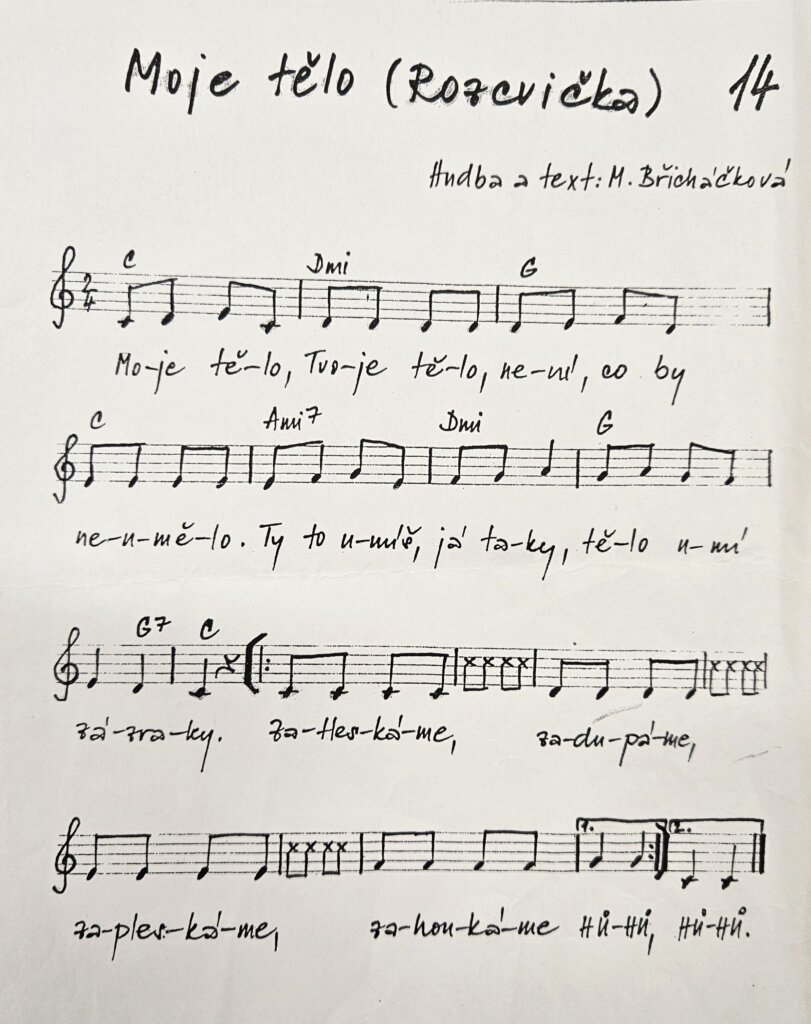 Moje tělo (Rozcvička) 14
Hudba a text: M. Břicháčková
C Dmi G
2/4
Mo-je tě-lo, Tvo-je tě-lo, ne-ní, co by
C Ami7 Dmi G
ne-u-mě-lo. Ty to u-míš, já ta-ky, tě-lo u-mí
G7 C
zá-zra-ky. Za-tles-ká-me, za-du-pá-me,
1. 2.
za-ples-ká-me, za-hou-ká-me HŮ-HŮ, HŮ-HŮ.